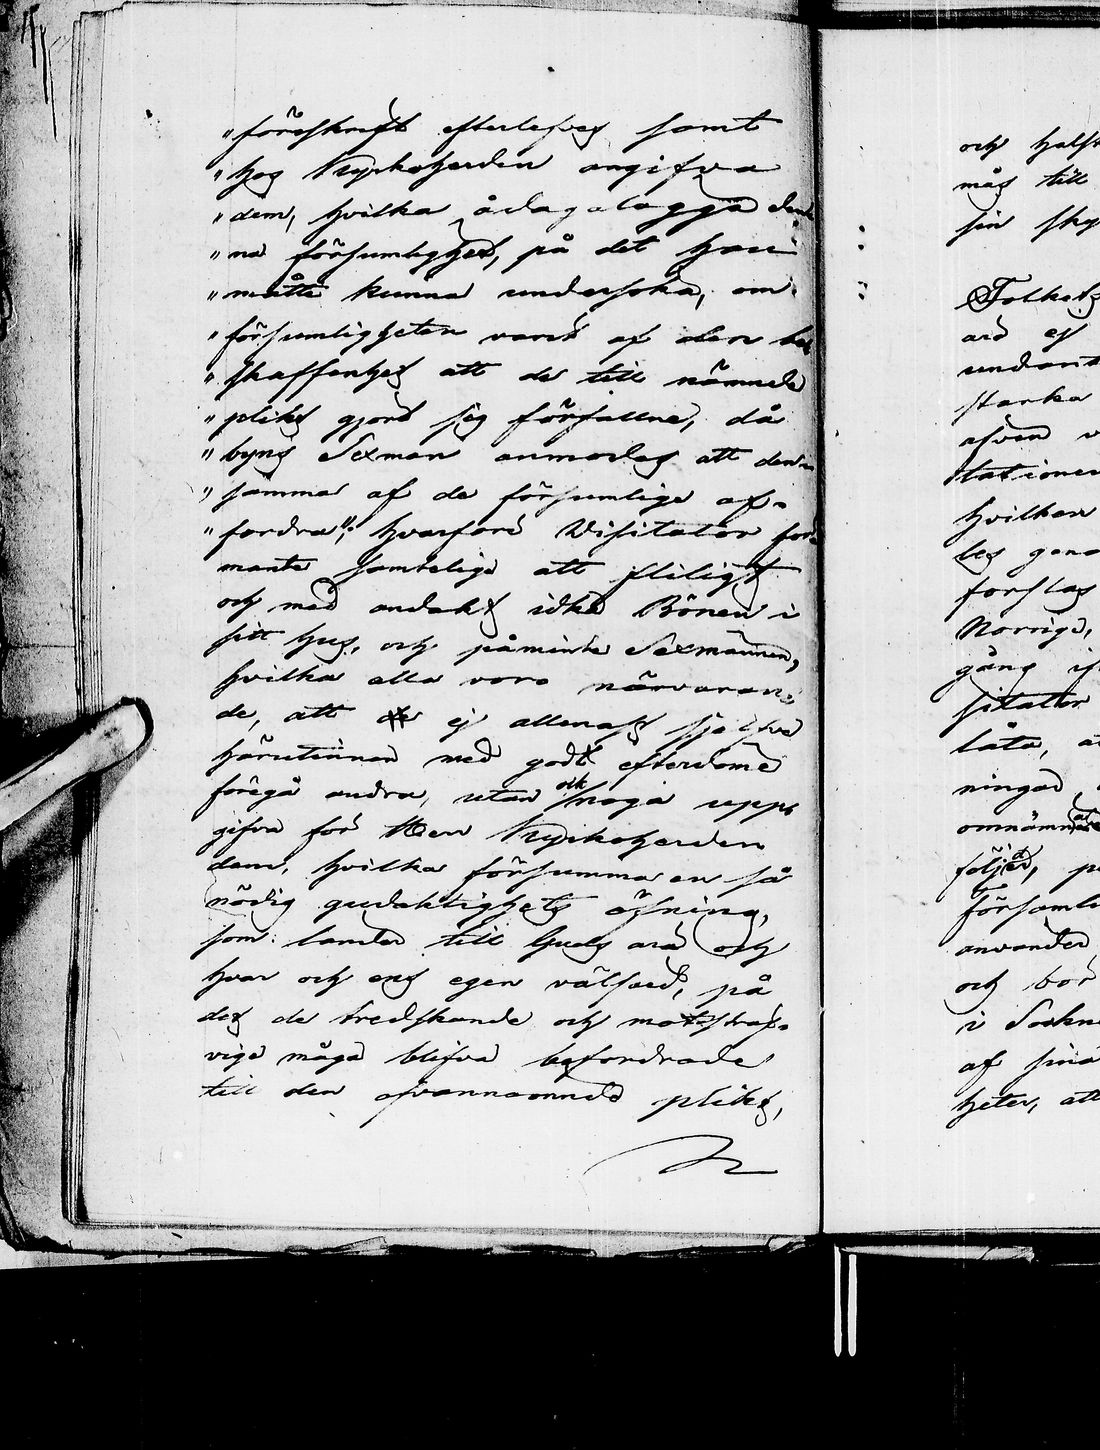 "föreskrift efterlefves samt
"hos Kyrkoherden angifva
"dem, hvilka ådagalagga den
"na försumlighet, på det han
"måtte kunna undersöka, om
"försumligheten varit af den be
"skaffenhet att de till nämnde
"plikt gjort sig förfallne, då
"byns Sexman anmodas att den
"samma af de försumlige af-
"fordra"; hvarföre Visitator för
mante samtelige att flitigt
och med andakt idka Bönen i
sitt hus, och påminte Sexmännen,
hvilka alla voro närvaran-
de, att ej allenast sjelfve
härutinnan med godt efterdöme
föregå andra, utan ock noga upp-
gifva för Herr Kyrkoherden
dem, hvilka försumma en så
nödig gudaktighets öfning,
som länder till Guds ära och
hvar och ens egen välfärd, på
det de tredskande och motsträf-
vige måga blifva befordrade
till den ofvannämnde plikt,
och halst
mås till
sin sky
Folkets
ard ej
undant
starka
afven v
tationen
hvilken
les geno
forslag
Norrige,
gång
sitator
låta, a
ningad
omnämn
följer, p
församl
använder
och bör
i Sockn
af sina
heter, att